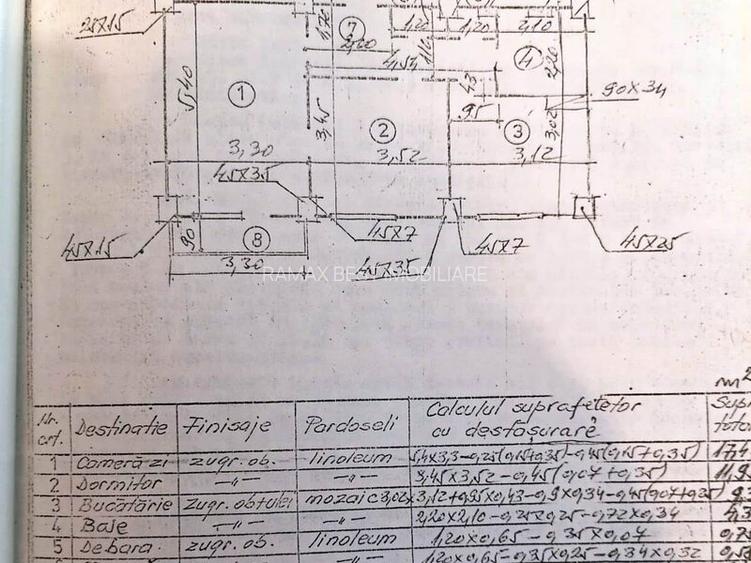 25X15
1,20
7
2,20
1,20
1,20
2,10
4
2,20
4,52
1,10
43
90X34
5,40
1
3,45
2
95
3
3,02
3,30
3,52
3,12
45X35
45X15
90
8
3,30
45X7
45X35
45X7
45X25
RAMAX BEST IMOBILIARE
m²
Nr. crt. Destinatie Finisaje Pardoseli Calculul suprafetelor cu desfășurare
1 Cameră zi zugr. ob. linoleum 5,4x3,3-0,25(0,15+0,35)-0,45(0,15+0,35) 17,4
2 Dormitor -"- -"- 3,45x3,52-0,45(0,07+0,35) 11,9
3 Bucătărie zugr. obtulei mozaic 3,02x3,12+0,95x0,43-0,9x0,34-0,45(0,07+0,25) 9
4 Baie -"- -"- 2,20x2,10-0,25x0,25-0,72x0,34 4,3
5 Debara zugr. ob. linoleum 1,20x0,65-0,35x0,07 0,7
1,20x0,65-0,35x0,25-0,34x0,32 0,5